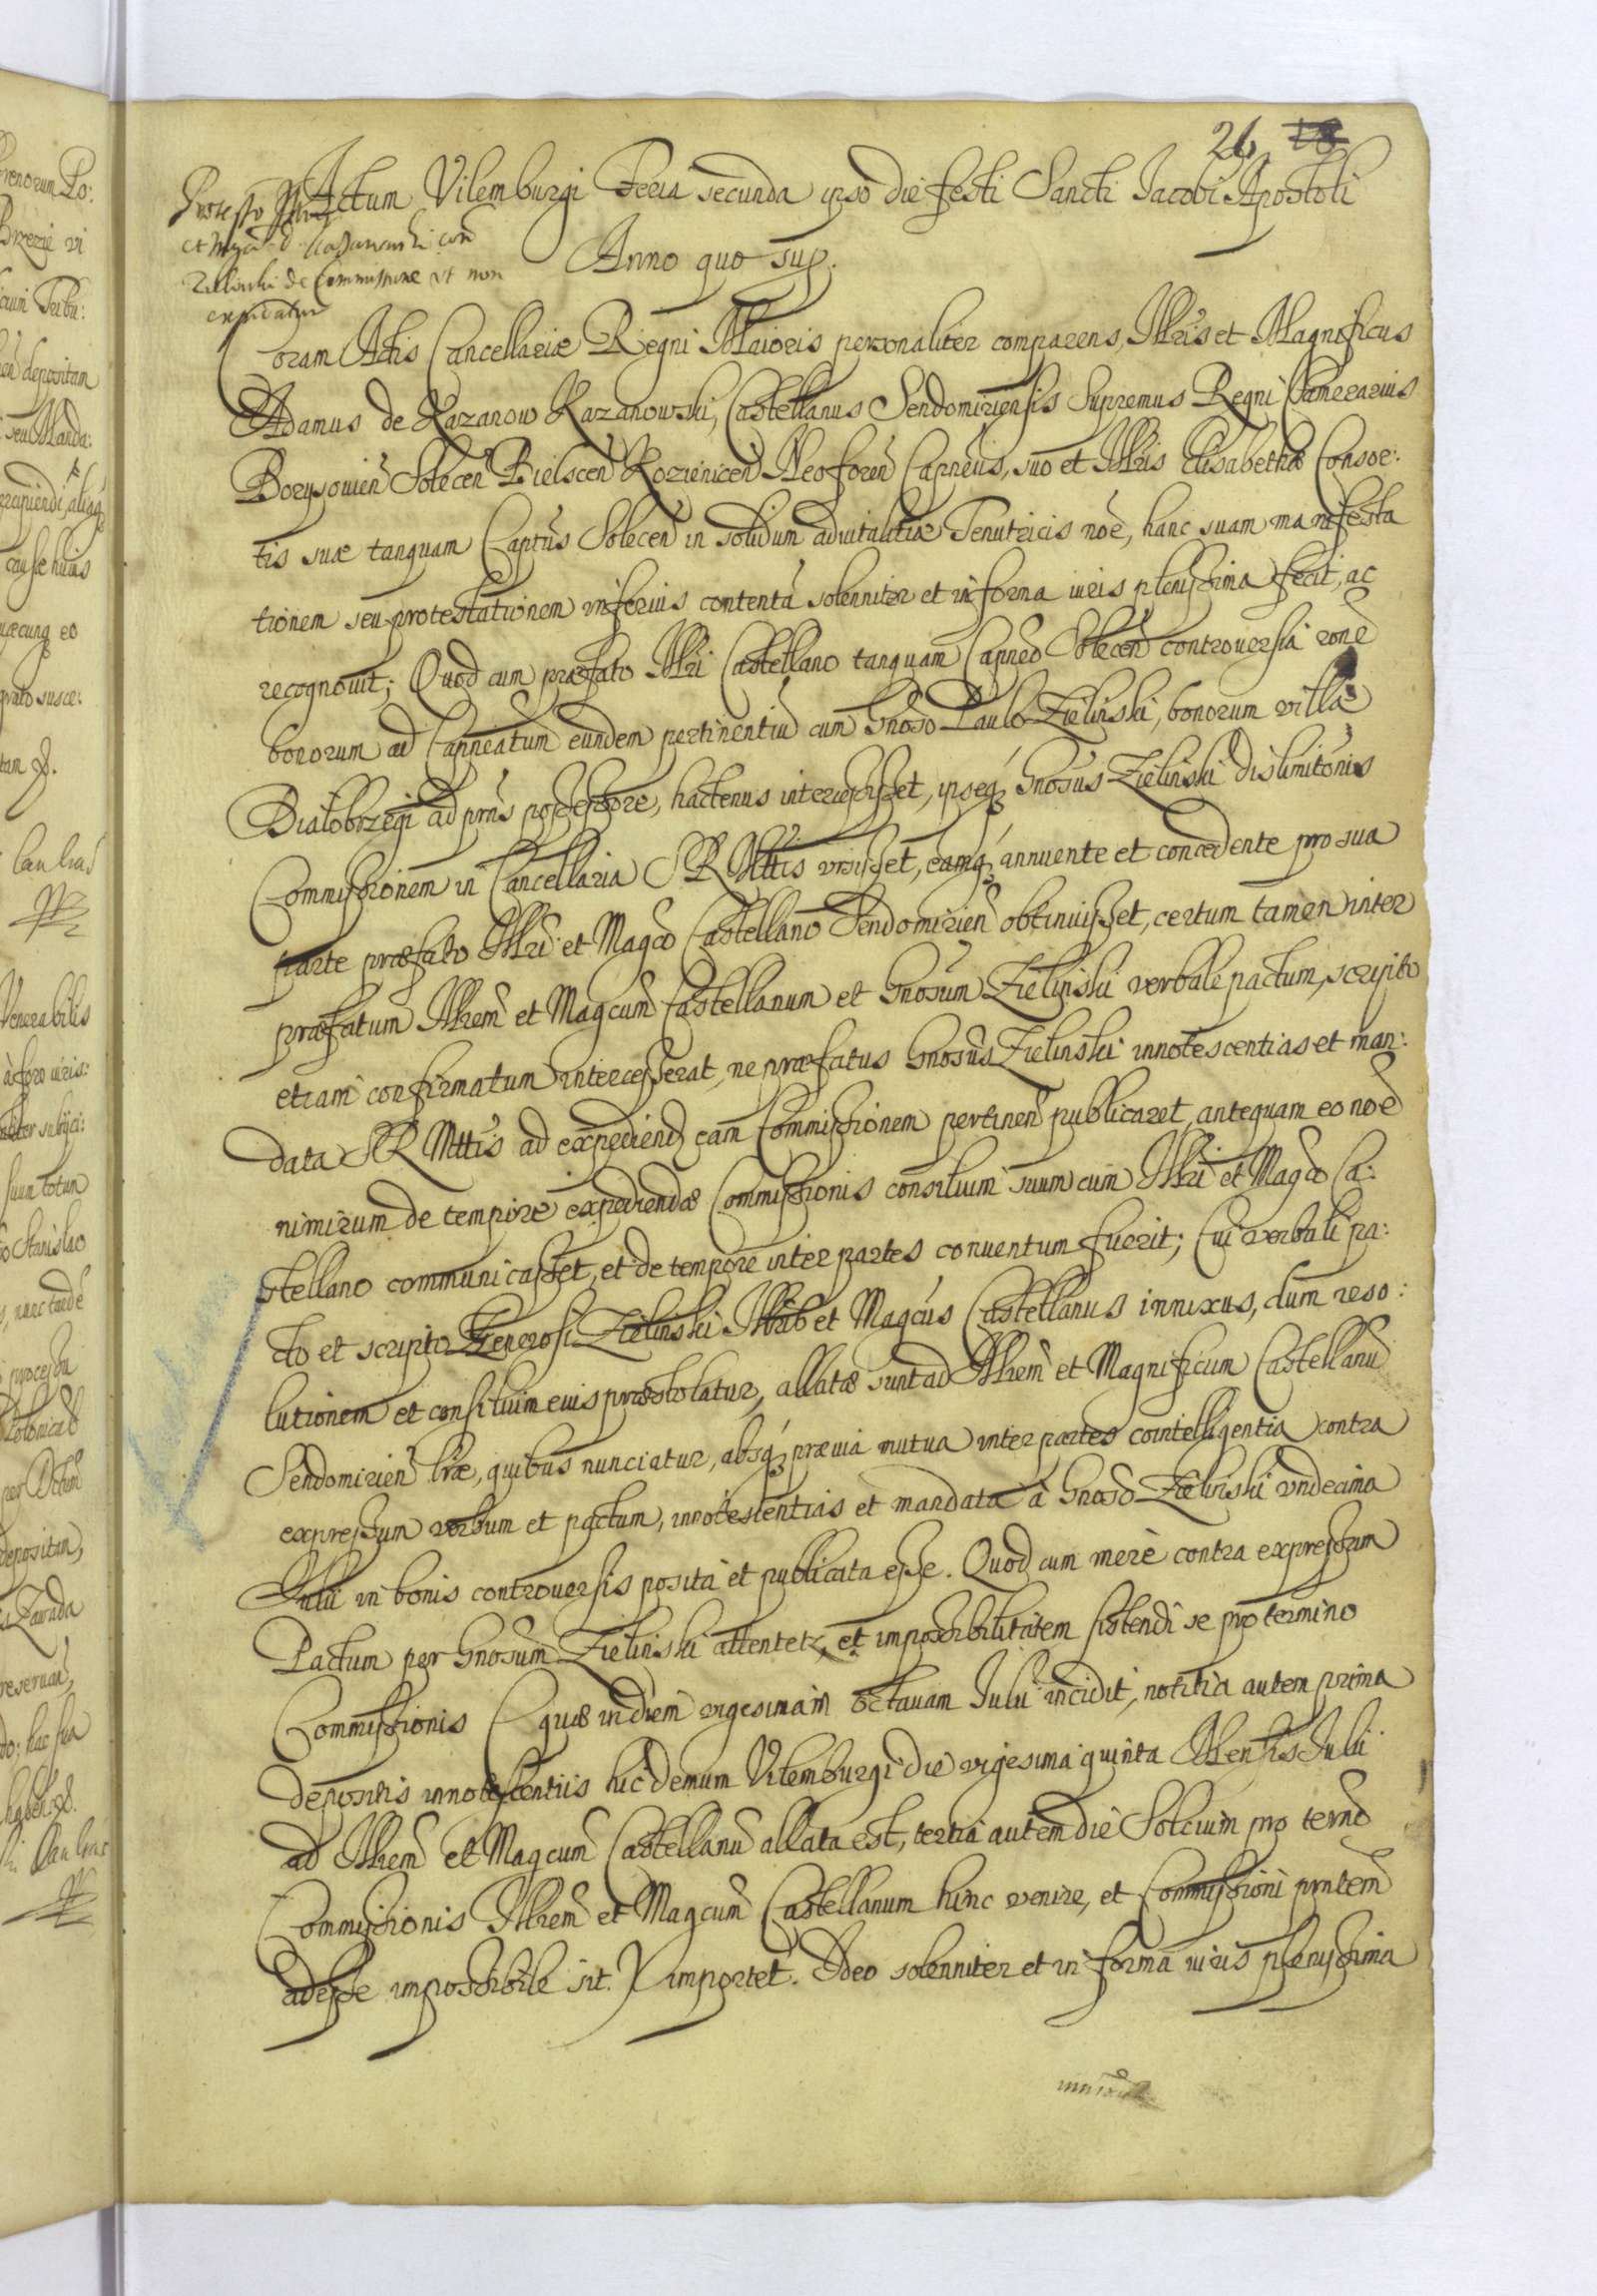 26 18
Actum Vilemburgi Feria secunda ipso die festi Sancti Jacobi Apostoli
Anno quo sup.
et Mgci D. Kazanowski con
Zilinski de Commissione ut non
expediatur
Coram Actis Cancellariæ Regni Maioris personaliter comparens, Illris et Magnificus
Adamus de Kazanow Kazanowski, Castellanus Sendomiriensis Supremus Regni Camerarius
Borysouien Solecen Bielscen Kozienicen Neoforen Capneus, suo et Illris Elisabethæ Consor:
tis suæ tanquam Captus Solecen in solidum aduitalitiæ Tenutricis noe, hanc suam manifesta
tionem seu protestationem inferius contenta solenniter et in forma iuris plenissima fecit, ac
recognouit; Quod cum præfato Illri Castellano tanquam Capneo Solecen controuersia rone
bonorum ad Capneatum eundem pertinentiu cum Gnoso Paulo Zielinski, bonorum villæ
Białobrzegi ad prns possessore, hactenus intercessisset, ipseq Gnosus Zielinski dislimitonis
Commissionem in Cancellaria S R Mttis ursisset, eamq annuente et concedente pro sua
parte præfato Illri et Magco Castellano Sendomirien obtinuisset, certum tamen inter
præfatum Illrem et Magcum Castellanum et Gnosum Zielinski verbale pactum, scripto
etiam confirmatum intercesserat, ne præfatus Gnosus Zielinski innotescentias et man:
data S R Mttis ad expediend eam Commissionem pertinen publicaret, antequam eo noe
nimirum de tempore expediendæ Commissionis consilium suum cum Illri et Magco Ca:
stellano communicasset, et de tempore inter partes conuentum fuerit; Cui verbali pa:
cto et scripto Generosi Zielinski Illris et Magcus Castellanus innixus, dum reso:
lutionem et consilium eius præstolatur, allatæ sunt ad Illrem et Magnificum Castellanu
Sendomirien lræ, quibus nunciatur, absq præuia mutua inter partes cointelligentia contra
expressum verbum et pactum, innotescentias et mandata a Gnoso Zielinski undecima
Julii in bonis controuersis posita et publicata esse. Quod cum merè contra expressum
Pactum per Gnosum Zielinski attentetr, et impossibilitatem sistendi se pro termino
Commissionis quæ in diem vigesimam octauam Julii incidit, notitia autem prima
depositis innotescentiis hic demum Vilemburgi die vigesima quinta Mensis Julii
ad Illrem et Magcum Castellanu allata est, tertia autem die Solcium pro termo
Commissionis Illrem et Magcum Castellanum hinc venire, et Commissioni prntem
adesse impossibile sit. importet. Ideo solenniter et in forma iuris plenissima